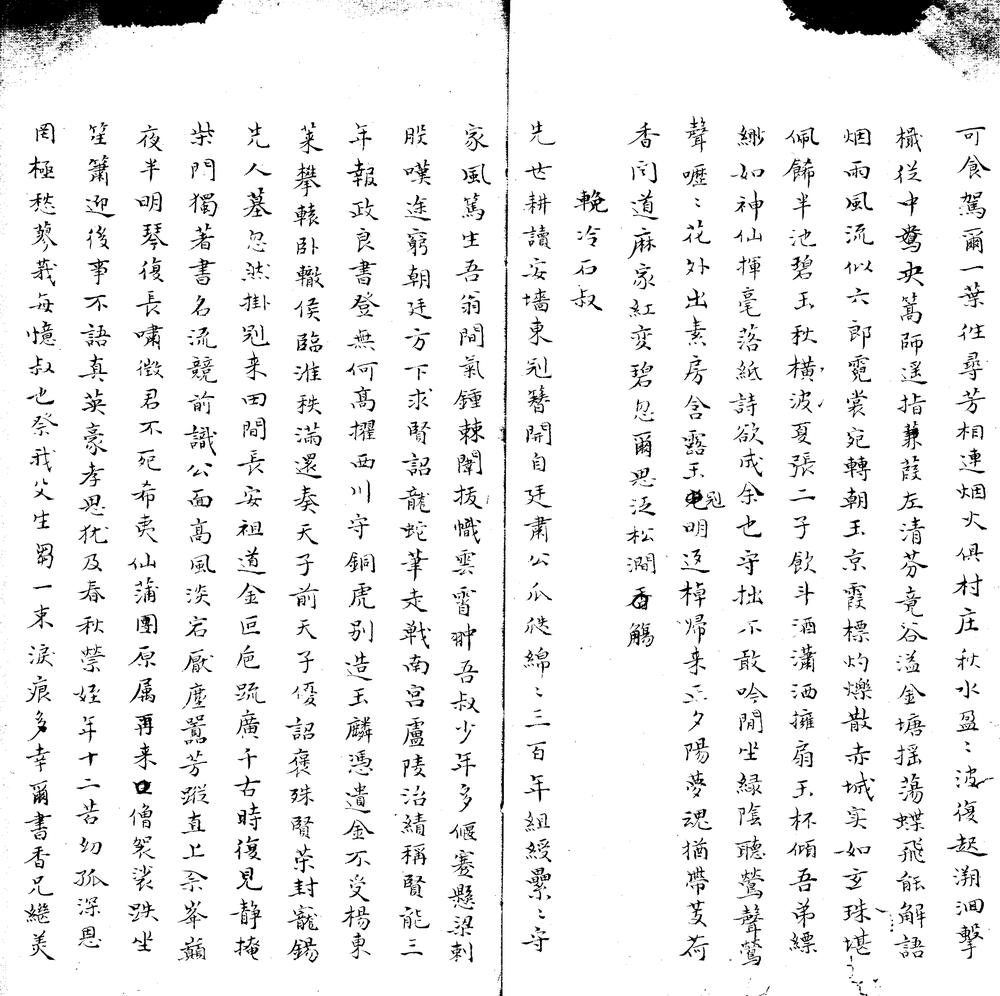 可食駕爾一葉徃尋芳相連烟火俱村庄秋水盈〻波復起溯洄擊
檝從中驚央篙師遥指蒹葭左清芬竟谷溢金塘揺蕩蝶飛能解語
烟雨風流似六郎霓裳宛轉朝玉京霞標灼爍散赤城实如玄珠堪
佩餙半池碧玉秋横波夏張二子飲斗酒瀟洒擁扇玉杯傾吾弟縹
緲如神仙揮毫落紙詩欲成余也守拙不敢吟閒坐緑陰聴鶯聲鶯
聲嚦〻花外出素房含露玉冠明返棹帰来正夕陽夢魂猶帶芰荷
香同道麻家紅変碧忽爾思泛松澗觴
輓冷石叔
先世耕讀安墻東冠簪開自廷肅公瓜瓞綿〻三百年組綬纍〻守
家風篤生吾翁間氣鍾棘闈拔幟雲霄翀吾叔少年多偃蹇懸梁刺
股嘆途窮朝廷方下求賢詔龍蛇筆走戦南宫盧陵治績稱賢能三
年報政良書登無何髙擢西川守銅虎别造玉麟憑遺金不受楊東
莱攀轅卧轍侯臨淮秩滿還奏天子前天子優詔褒殊賢荣封寵錫
先人墓忽然掛冠来田間長安祖道金叵巵䟽廣千古時復見静掩
柴門獨著書名流競前識公面髙風淡宕厭塵囂芳蹤直上佘峯巔
夜半明琴復長嘯徴君不死希夷仙蒲團原属再来僧袈裟趺坐
笙簫迎後事不語真英豪孝思犹及春秋甞姪年十二苦幼孤深恩
罔極愁蓼莪每憶叔也祭我父生芻一束淚痕多幸爾書香兄繼美